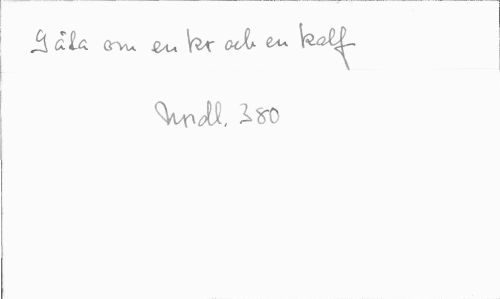 Gåta om en ko och en kalf
Nordl. 380